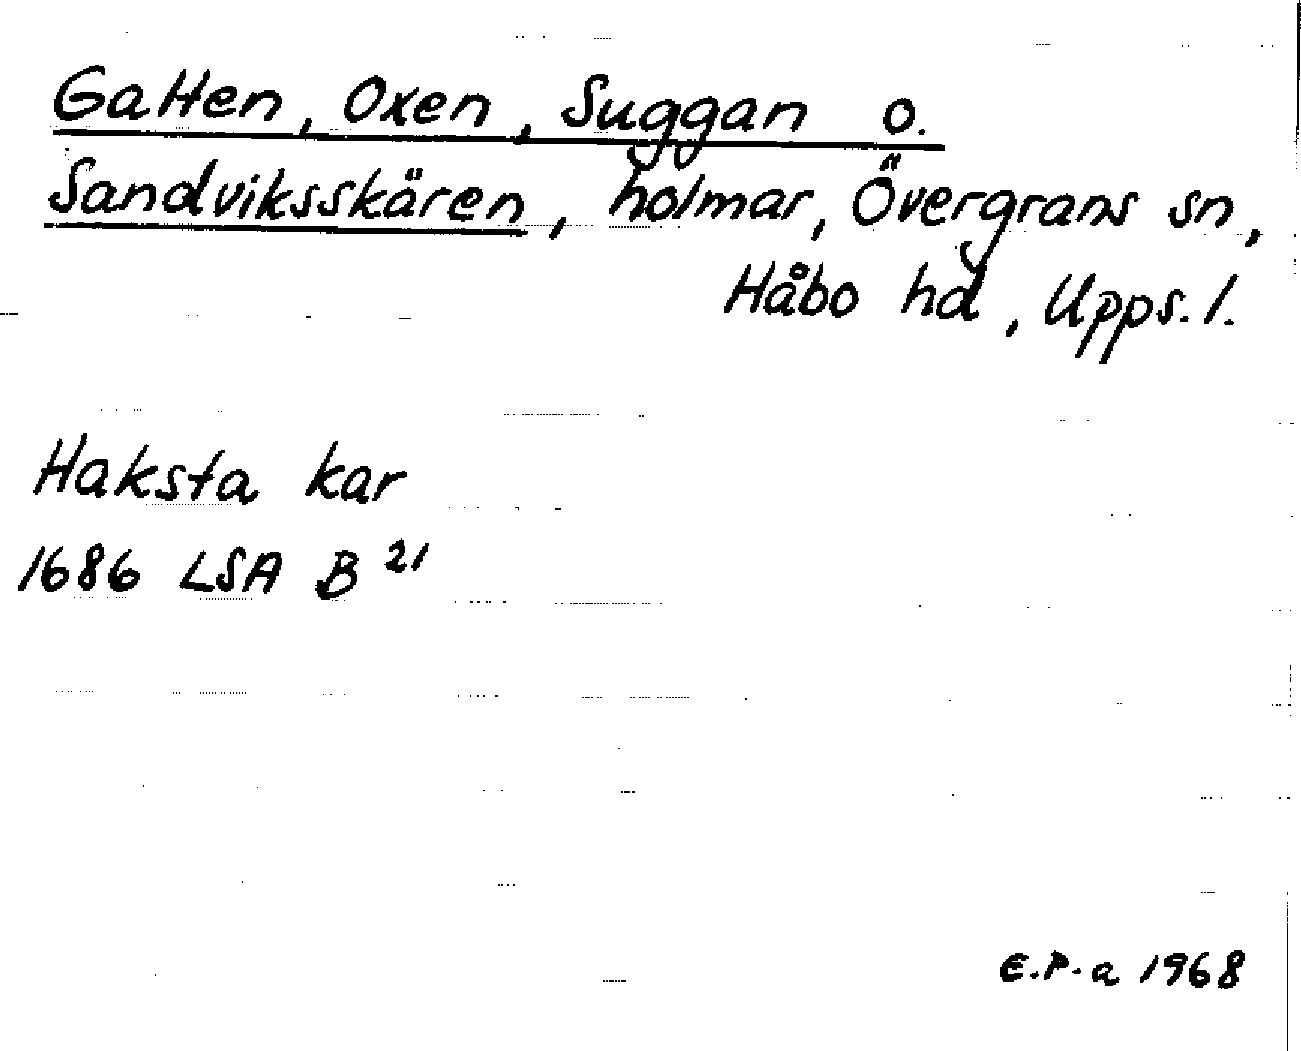 Galten, Oxen, Suggan o.
Sandviksskären, holmar, Övergrans sn,
Håbo hd, Upps. l.
Haksta kar
1686 LSA B 21
E.P-a 1968